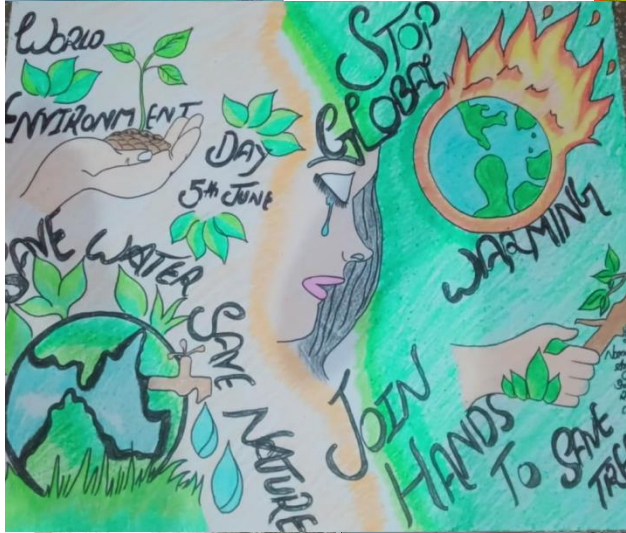 WORLD
ENVIRONMENT
DAY
5th JUNE
SAVE WATER
SAVE NATURE
STOP
GLOBAL
WARMING
JOIN
HANDS
TO SAVE